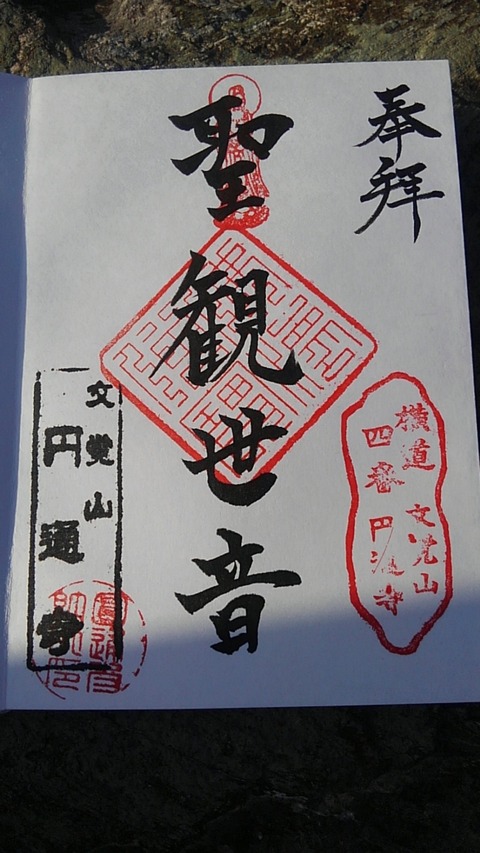 奉拝
聖観世音
横道
四番
文覚山
円通寺
文覚山
円通寺